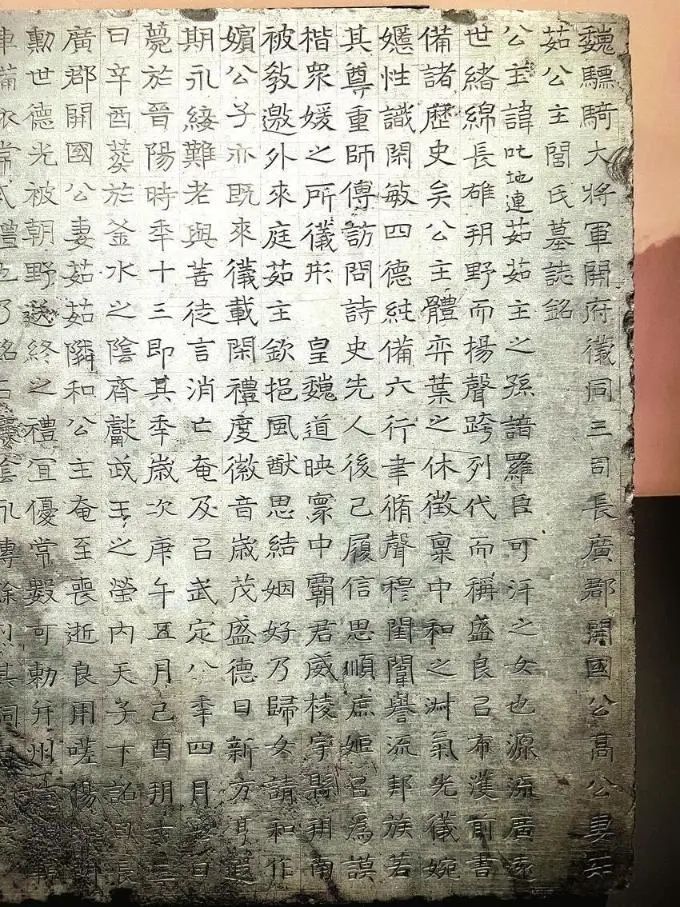 魏驃騎大將軍開府儀同三司長廣郡開國公高公妻茹
茹公主閭氏墓誌銘
公主諱叱地連茹茹主之孫諳羅臣可汗之女也源流廣遠
世緒綿長雄朔野而揚聲跨列代而稱盛良㠯布濩前書
備諸歷史矣公主體弈葉之休徵稟中和之淑氣光儀婉
嬺性識閑敏四德純備六行聿脩聲穆閨闈譽流邦族若
其尊重師傅訪問詩史先人後己履信思順庶姬㠯為謨
楷衆媛之所儀形 皇魏道映寰中霸君威棱宇縣朔南
被敎邀外來庭茹主欽挹風猷思結姻好乃歸女請和作
嬪公子亦既來儀載閑禮度徽音歲茂盛德日新方亨遐
期永綏難老與善徒言消亡奄及㠯武定八年四月七日
薨於晉陽時年十三即其年歲次庚午五月己酉朔十三
日辛酉葬於釜水之陰齊獻武王之塋內天子下詔曰長
廣郡開國公妻茹茹隣和公主奄至喪逝良用嗟傷
勳世德光被朝野送終之禮宜優常數可敕幷州造輼輬
車備依常式禮也乃銘石壤陰永傳餘烈其詞曰